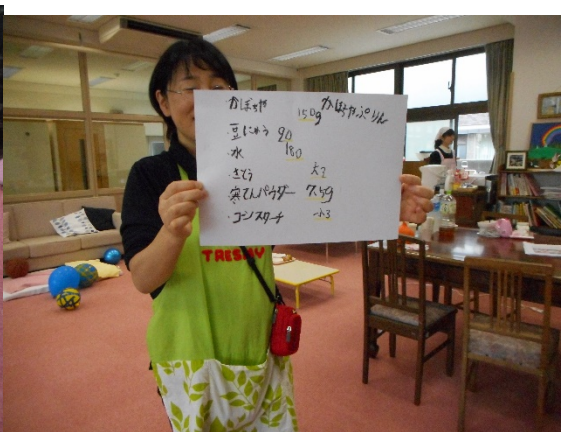 かぼちゃ 150g かぼちゃぷりん
・豆にゅう 90
・水 180
・さとう 大2
・寒てんパウダー 7.5g
・コンスターチ 小3